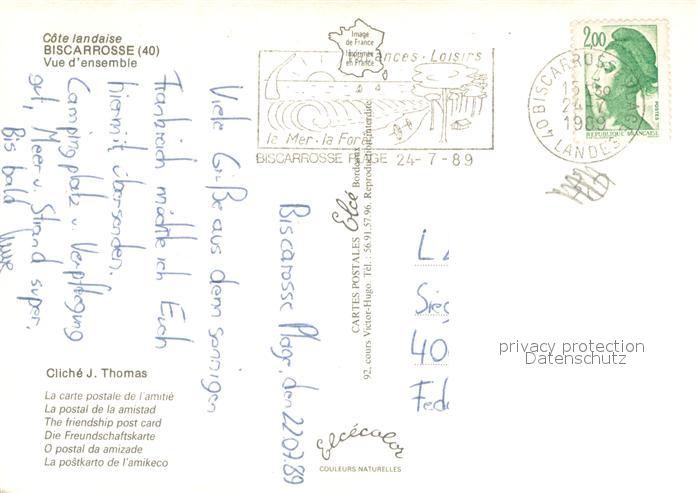 Côte landaise
BISCARROSSE (40)
Vue d'ensemble
Image
de France
Imprimée
en France
ances - Loisirs
la Mer - la For
BISCARROSSE PLAGE 24-7-89
2,00
POSTES
REPUBLIQUE FRANÇAISE
40 BISCARROSSE
24-7
1989
LANDES
Biscarosse Plage, den 22.07.89
Viele Grüße aus dem sonnigen
Frankreich möchte ich Euch
hiermit übersenden.
Campingplatz u. Verpflegung
gut, Meer u. Strand super.
Bis bald
CARTES POSTALES Elcé Bordeaux
92, cours Victor-Hugo. Tél.: 56.91.57.96. Reproduction interdite.
L
Sieg
40
Fed
privacy protection
Datenschutz
Cliché J. Thomas
La carte postale de l'amitié
La postal de la amistad
The friendship post card
Die Freundschaftskarte
O postal da amizade
La poŝtkarto de l'amikeco
Elcécolor
COULEURS NATURELLES